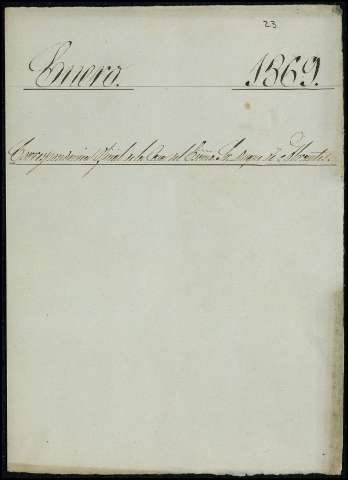 23
Enero. 1869.
Correspondencia Oficial de la Casa del Exmo. Sr. Duque de Abrantes.